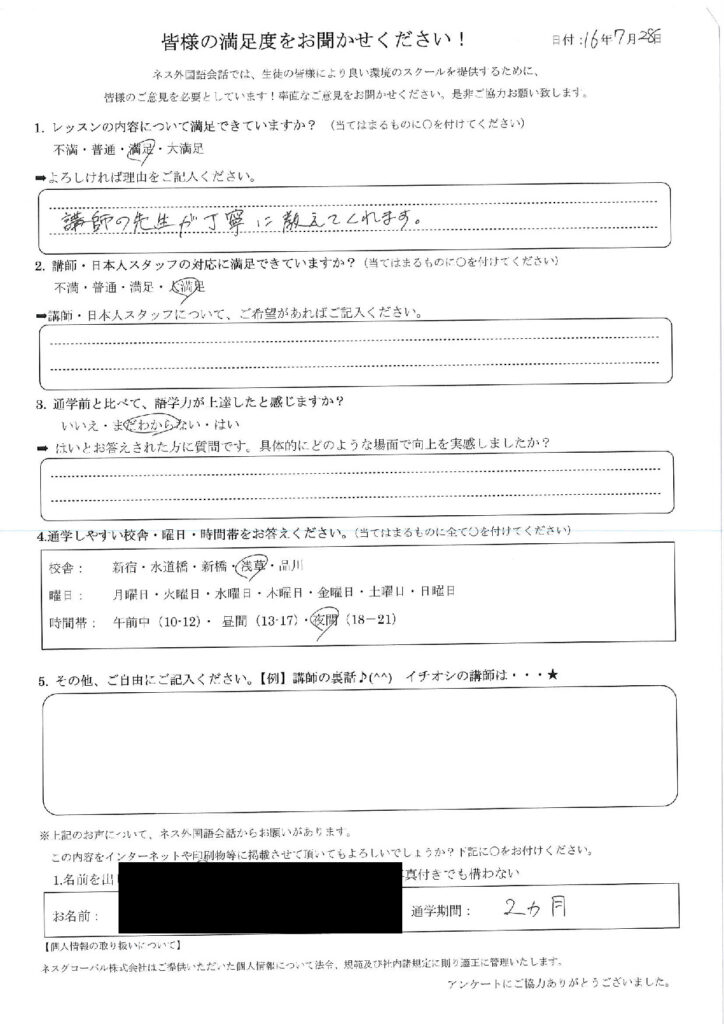 皆様の満足度をお聞かせください！
日付：16年7月28日
ネス外国語会話では、生徒の皆様により良い環境のスクールを提供するために、
皆様のご意見を必要としています！率直なご意見をお聞かせください、是非ご協力お願い致します。
1. レッスンの内容について満足できていますか？ （当てはまるものに○を付けてください）
不満・普通・満足・大満足
➡よろしければ理由をご記入ください。
講師の先生が丁寧に教えてくれます。
2. 講師・日本人スタッフの対応に満足できていますか？（当てはまるものに○を付けてください）
不満・普通・満足・大満足
➡講師・日本人スタッフについて、ご希望があればご記入ください。
3. 通学前と比べて、語学力が上達したと感じますか？
いいえ・まだわからない・はい
➡ はいとお答えされた方に質問です。具体的にどのような場面で向上を実感しましたか？
4.通学しやすい校舎・曜日・時間帯をお答えください。（当てはまるものに全て○を付けてください）
校舎： 新宿・水道橋・新橋・浅草・品川
曜日： 月曜日・火曜日・水曜日・木曜日・金曜日・土曜日・日曜日
時間帯： 午前中（10-12）・ 昼間（13-17）・夜間（18－21）
5. その他、ご自由にご記入ください。【例】講師の裏話♪(^^) イチオシの講師は・・・★
※上記のお声について、ネス外国語会話からお願いがあります。
この内容をインターネットや印刷物等に掲載させて頂いてもよろしいでしょうか？下記に○をお付けください。
1.名前を出 真付きでも構わない
お名前： 通学期間： 2ヵ月
【個人情報の取り扱いについて】
ネスグローバル株式会社はご提供いただいた個人情報について法令、規範及び社内諸規定に則り適正に管理いたします。
アンケートにご協力ありがとうございました。